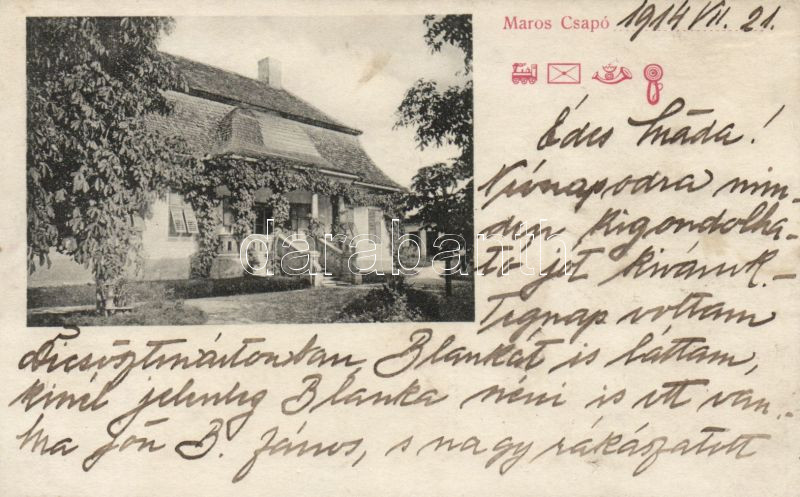 Maros Csapó 1914 VII. 21.
Édes Máda!
Névnapodra min-
den kigondolha-
tó jót kivánok.
Tegnap voltam
Dicsőztmártonban Blankát is láttam,
kinél jelenleg Blanka néni is itt van.
Ma jön B. János, s nagy rákászatott
darabanth.com